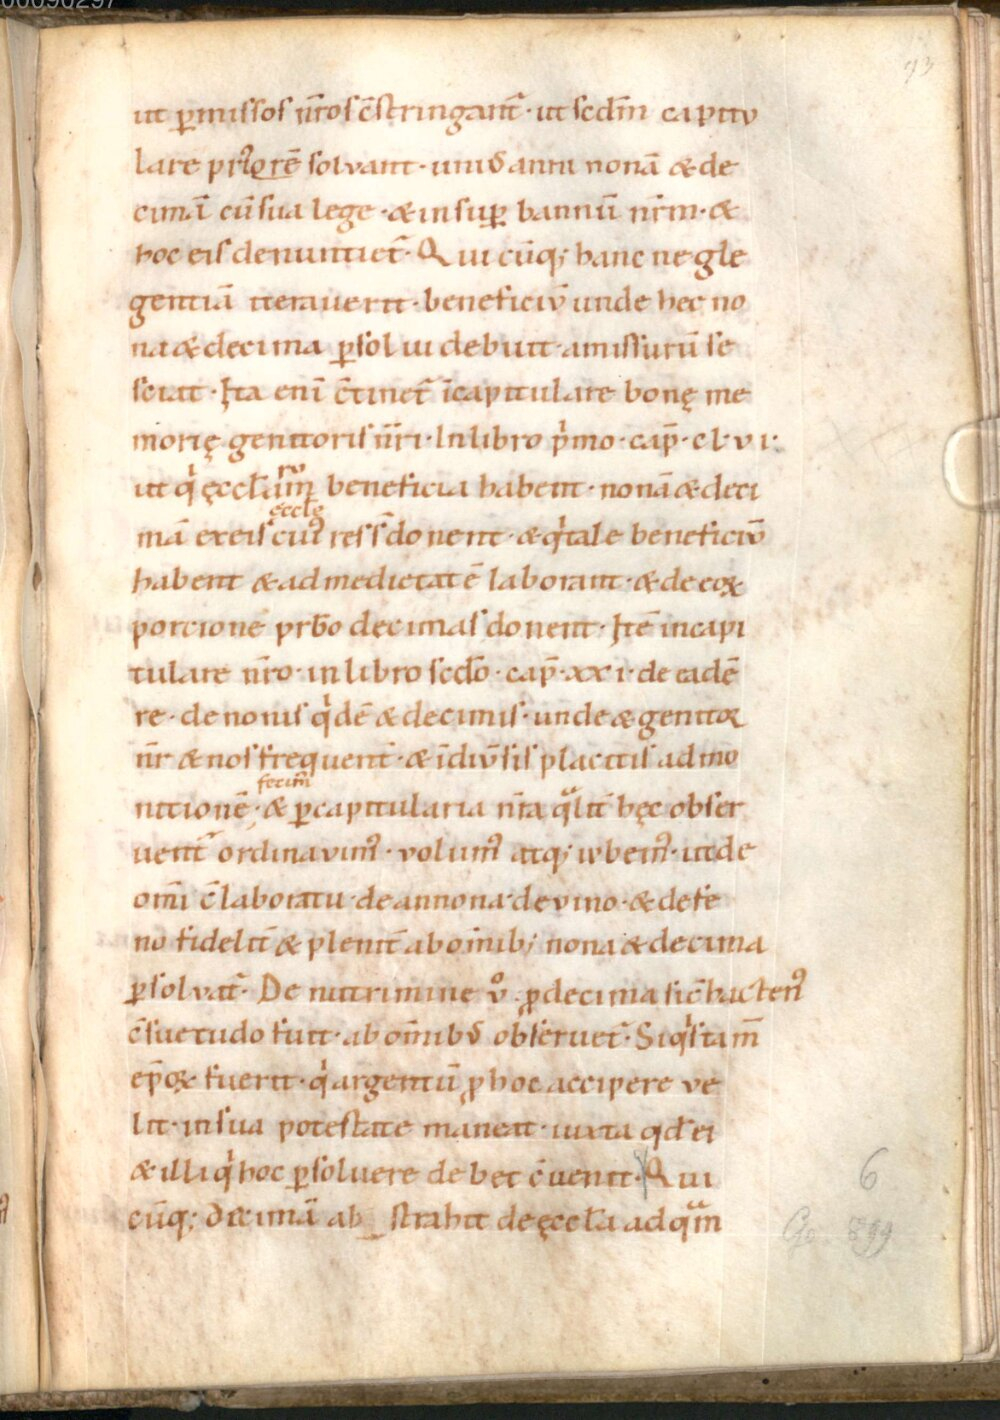 00090297
73
ut ꝑmissos n̄ros c̄stringant᷑ · ut scdm̄ capitu
lare priorē solvant · uniꝰ anni nonā & de
cimā cū sua lege · & insuꝑ bannū nr̄m · &
hoc eis denuntiet᷑ · Qui cūq; hanc negle
gentiā iteraverit · beneficiū unde hec no
na & decima ꝑsolui debuit · amissurū se
sciat · Ita enī c̄tinet᷑ ī capitulare bonę me
morię genitoris n̄ri · In libro p̍mo · cap̄ · cl · vi ·
ut q̍ ęccl̄arū beneficia habent · nonā & deci
mā ex eis ęccłę cui᷒ res s̄ donent · & q̍ tale beneficiū
habent & ad medietatē laborant · & de eoꝝ
porcione prb̄o decimas donent · Itē in capi
tulare n̄ro · in libro scdo · cap̄ · xxi · de eadē
re · de nonis q̍dē & decimis · unde & genitor
nr̄ & nos frequent᷑ · & ī div̄sis placitis admo
nitionē fecim᷒ · & ꝑ capitularia nr̄a qͣlit᷑ hęc obser
vent᷑ ordinavim᷒ · volum᷒ atq; iubem᷒ · ut de
om̄i c̄laboratu · de annona · de vino · & de fe
no fidelit᷑ & plenit᷑ ab om̄ib; nona & decima
ꝑsolvat᷑ · De nutrimine v̊ · ꝓ decima sic̄ hacten᷒
c̄suetudo fuit · ab om̄ibꝰ observet᷑ · Siq̍s tam̄
ep̄oꝝ fuerit · q̍ argentū ꝓ hoc accipere ve
lit · in sua potestate maneat · iuxta qd̄ ei
& illi q̍ hoc ꝑsoluere debet c̄venit · Qui
cūq; decimā abstrahit de ęccl̄a ad qͣm
6
Ge. 899